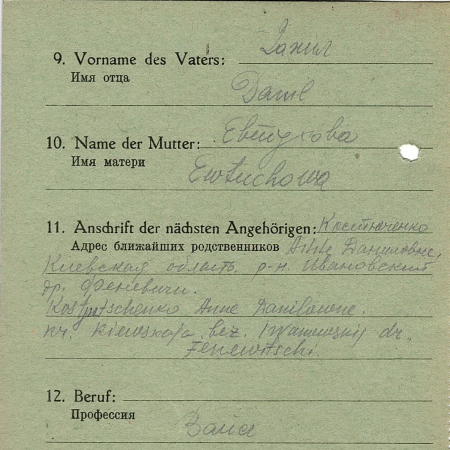 9. Vorname des Vaters: Данил
Имя отца
Danil
10. Name der Mutter: Евтухова
Имя матери
Ewtuchowa
11. Anschrift der nächsten Angehörigen: Костюченко
Адрес ближайших родственников Анне Даниловне,
Киевская область р-н. Ивановский
др. Феневичи.
Kostjutschenko Anne Danilowne.
kr. Kiewskaja bez. Iwanowskij dr.
Fenewitschi.
12. Beruf:
Профессия